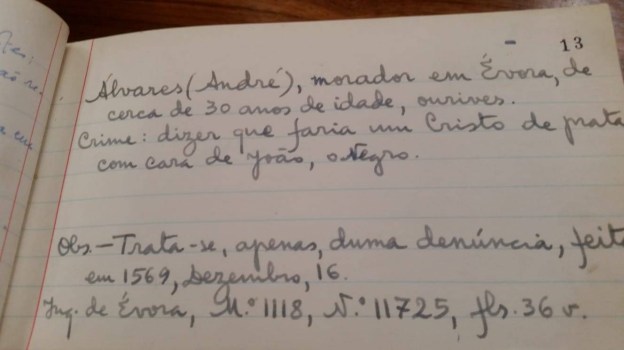 - 13
Álvares (André), morador em Évora, de
cerca de 30 anos de idade, ourives.
Crime: dizer que faria um Cristo de prata
com cara de João, o Negro.
Obs. - Trata-se, apenas, duma denúncia, feita
em 1569, Dezembro, 16.
Inq. de Évora, M.º 1118, N.º 11725, fls. 36 v.